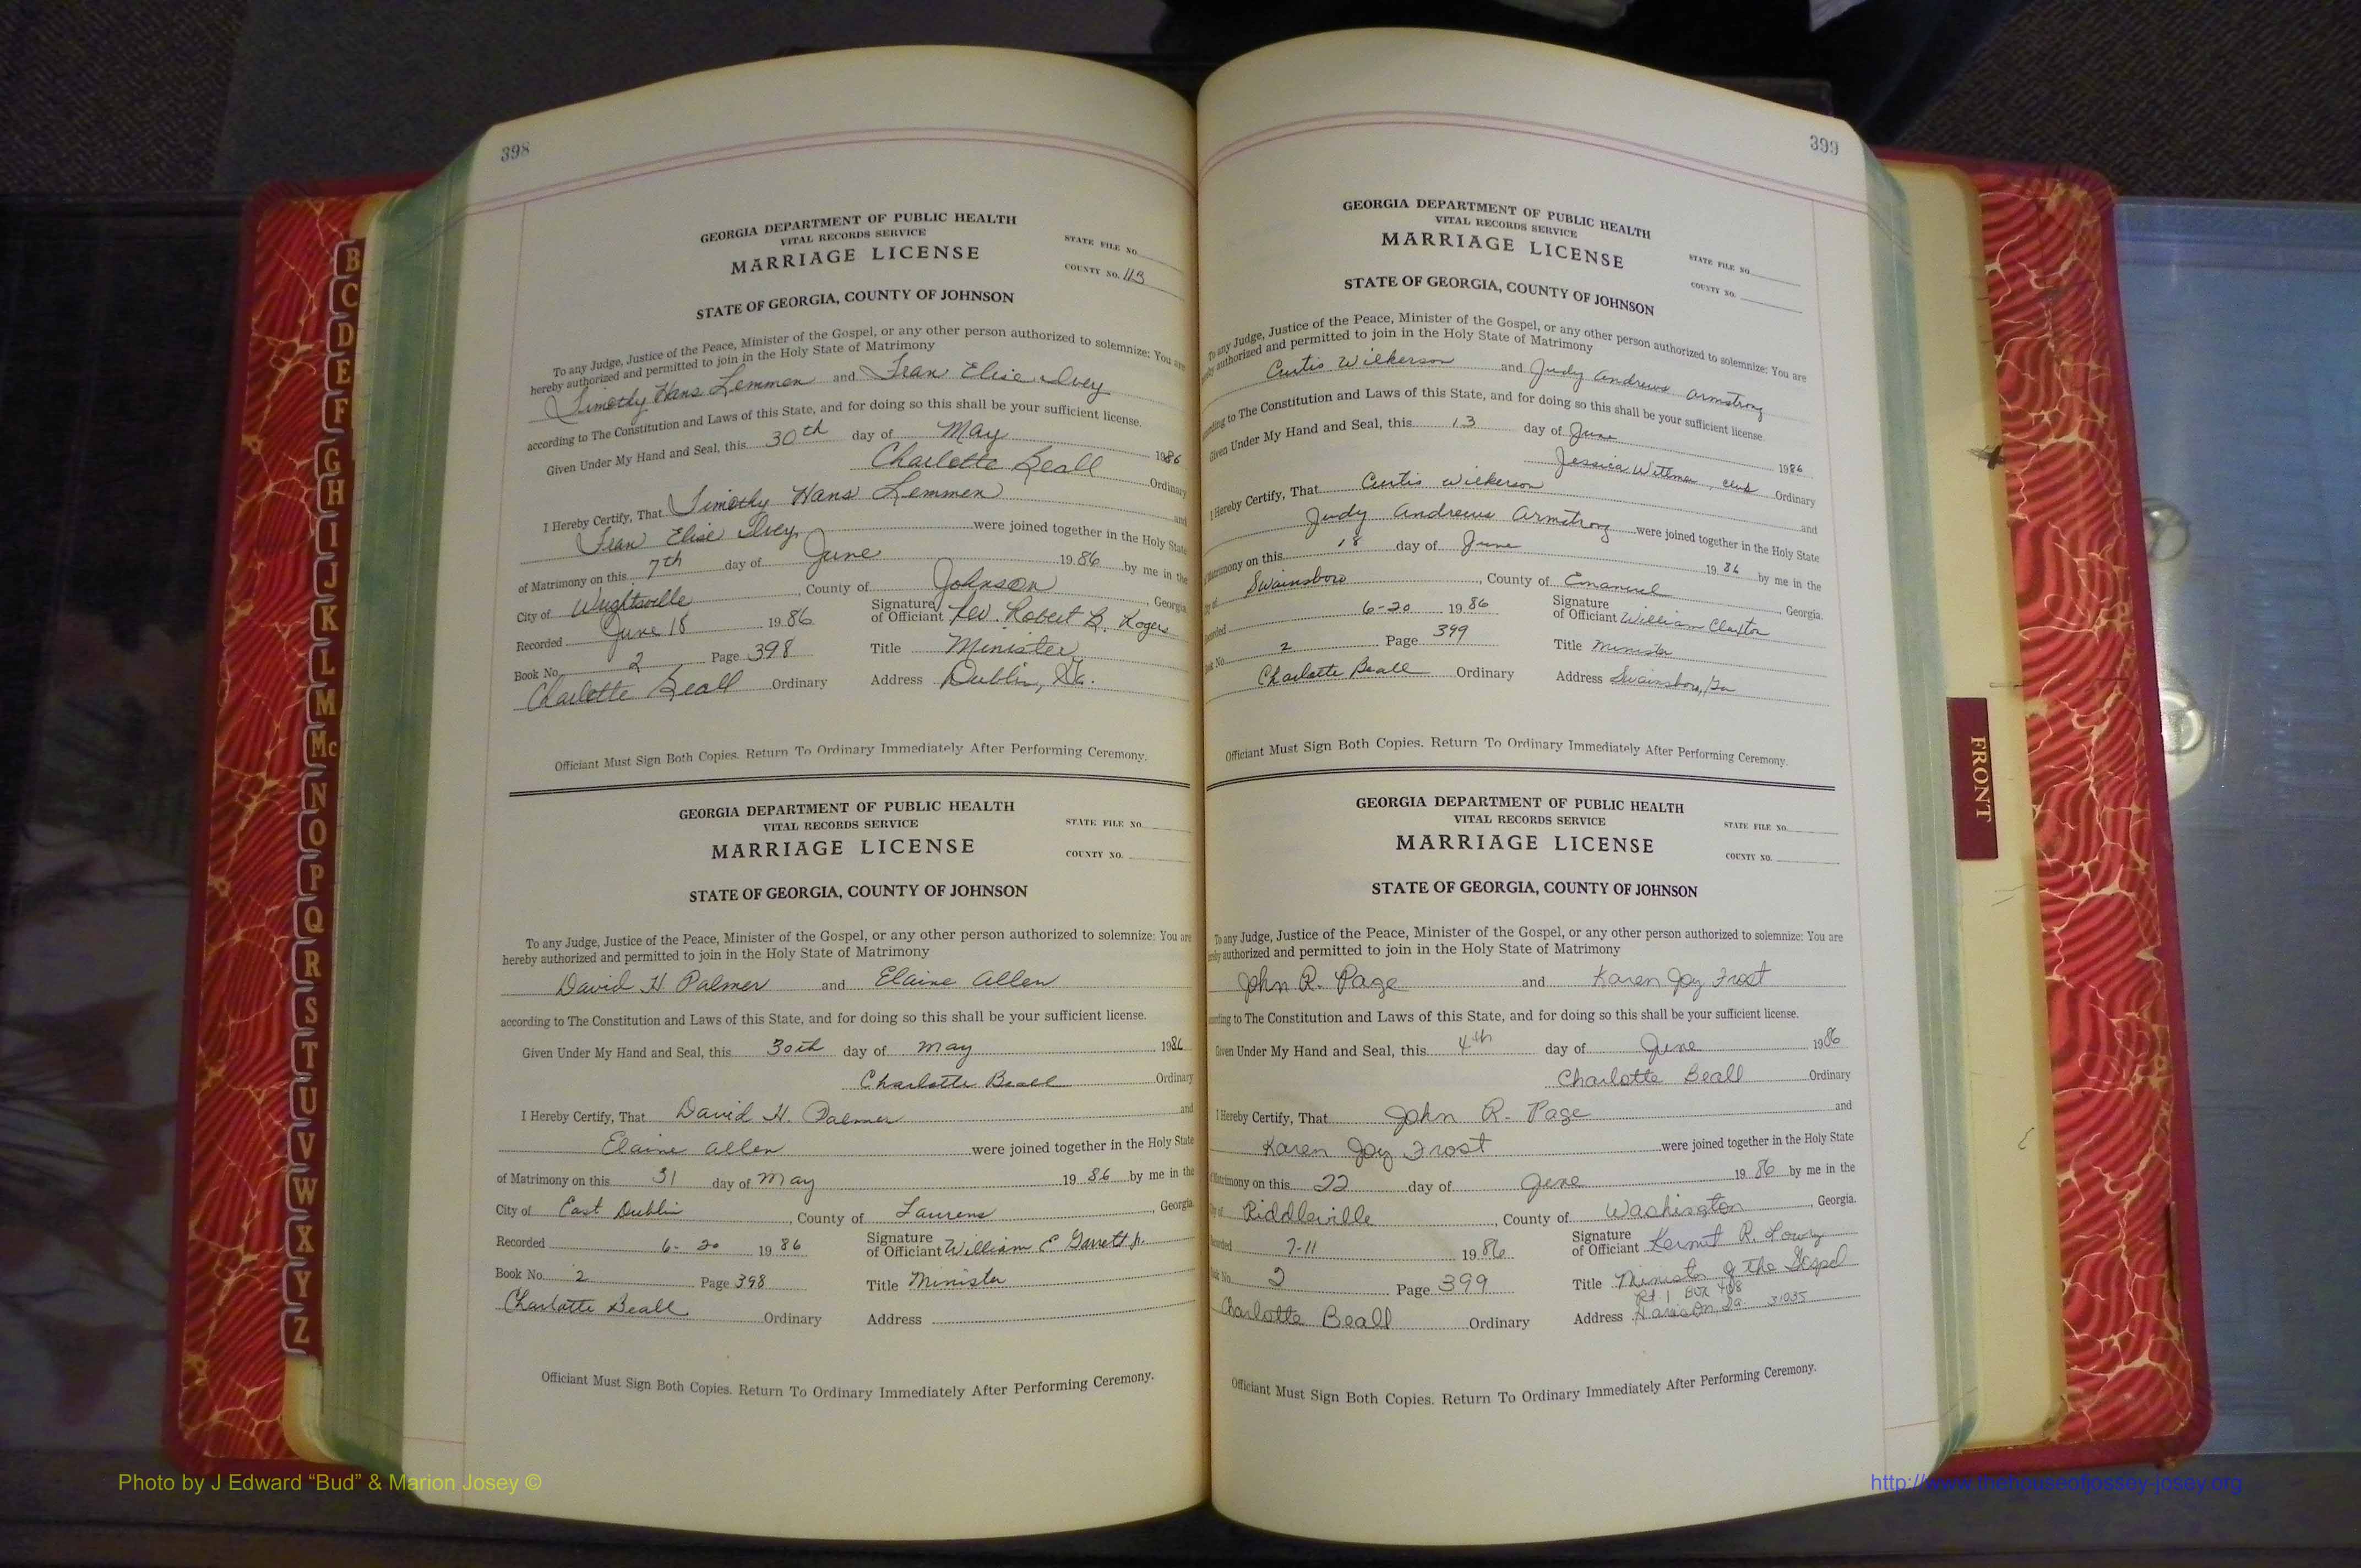 398
GEORGIA DEPARTMENT OF PUBLIC HEALTH
VITAL RECORDS SERVICE
MARRIAGE LICENSE
STATE FILE NO.
COUNTY NO. 113
STATE OF GEORGIA, COUNTY OF JOHNSON
To any Judge, Justice of the Peace, Minister of the Gospel, or any other person authorized to solemnize: You are
hereby authorized and permitted to join in the Holy State of Matrimony
Timothy Hans Lemmen and Fran Elise Ivey
according to The Constitution and Laws of this State, and for doing so this shall be your sufficient license.
Given Under My Hand and Seal, this 30th day of May 1986
Charlotte Beall Ordinary
I Hereby Certify, That Timothy Hans Lemmen and
Fran Elise Ivey were joined together in the Holy State
of Matrimony on this 7th day of June 19 86 by me in the
City of Wrightsville, County of Johnson, Georgia
Recorded June 18 19 86 Signature of Officiant Rev. Robert B. Rogers
Book No. 2 Page 398 Title Minister
Charlotte Beall Ordinary Address Dublin, Ga.
Officiant Must Sign Both Copies. Return To Ordinary Immediately After Performing Ceremony.
GEORGIA DEPARTMENT OF PUBLIC HEALTH
VITAL RECORDS SERVICE
MARRIAGE LICENSE
STATE FILE NO.
COUNTY NO.
STATE OF GEORGIA, COUNTY OF JOHNSON
To any Judge, Justice of the Peace, Minister of the Gospel, or any other person authorized to solemnize: You are
hereby authorized and permitted to join in the Holy State of Matrimony
David H Palmer and Elaine Allen
according to The Constitution and Laws of this State, and for doing so this shall be your sufficient license.
Given Under My Hand and Seal, this 30th day of May 1986
Charlotte Beall Ordinary
I Hereby Certify, That David H. Palmer and
Elaine Allen were joined together in the Holy State
of Matrimony on this 31 day of May 19 86 by me in the
City of East Dublin, County of Laurens, Georgia
Recorded 6-20 19 86 Signature of Officiant William E Garrett Jr.
Book No. 2 Page 398 Title Minister
Charlotte Beall Ordinary Address
Officiant Must Sign Both Copies. Return To Ordinary Immediately After Performing Ceremony.
399
GEORGIA DEPARTMENT OF PUBLIC HEALTH
VITAL RECORDS SERVICE
MARRIAGE LICENSE
STATE FILE NO.
COUNTY NO.
STATE OF GEORGIA, COUNTY OF JOHNSON
To any Judge, Justice of the Peace, Minister of the Gospel, or any other person authorized to solemnize: You are
authorized and permitted to join in the Holy State of Matrimony
Curtis Wilkerson and Judy Andrews Armstrong
to The Constitution and Laws of this State, and for doing so this shall be your sufficient license
Given Under My Hand and Seal, this 13 day of June 1986
Jessica Wittmer, clerk Ordinary
I Hereby Certify, That Curtis Wilkerson and
Judy Andrews Armstrong were joined together in the Holy State
Matrimony on this 18 day of June 19 86 by me in the
Swainsboro, County of Emanuel, Georgia.
6-20 19 86 Signature of Officiant William Claxton
No. 2 Page 399 Title Minister
Charlotte Beall Ordinary Address Swainsboro, Ga
Officiant Must Sign Both Copies. Return To Ordinary Immediately After Performing Ceremony.
GEORGIA DEPARTMENT OF PUBLIC HEALTH
VITAL RECORDS SERVICE
MARRIAGE LICENSE
STATE FILE NO.
COUNTY NO.
STATE OF GEORGIA, COUNTY OF JOHNSON
To any Judge, Justice of the Peace, Minister of the Gospel, or any other person authorized to solemnize: You are
authorized and permitted to join in the Holy State of Matrimony
John R. Page and Karen Joy Frost
to The Constitution and Laws of this State, and for doing so this shall be your sufficient license.
Given Under My Hand and Seal, this 4th day of June 1986
Charlotte Beall Ordinary
I Hereby Certify, That John R. Page and
Karen Joy Frost were joined together in the Holy State
Matrimony on this 22 day of June 19 86 by me in the
Riddleville, County of Washington, Georgia.
7-11 19 86 Signature of Officiant Kermit R. Lowry
No. 2 Page 399 Title Minister of the Gospel
Rt 1 Box 408
Charlotte Beall Ordinary Address Harrison Ga 31035
Officiant Must Sign Both Copies. Return To Ordinary Immediately After Performing Ceremony.
B
C
D
E
F
G
H
I
J
K
L
M
Mc
N
O
P
Q
R
S
T
U
V
W
X
Y
Z
FRONT
Photo by J Edward “Bud” & Marion Josey ©
http://www.thehouseofjossey-josey.org